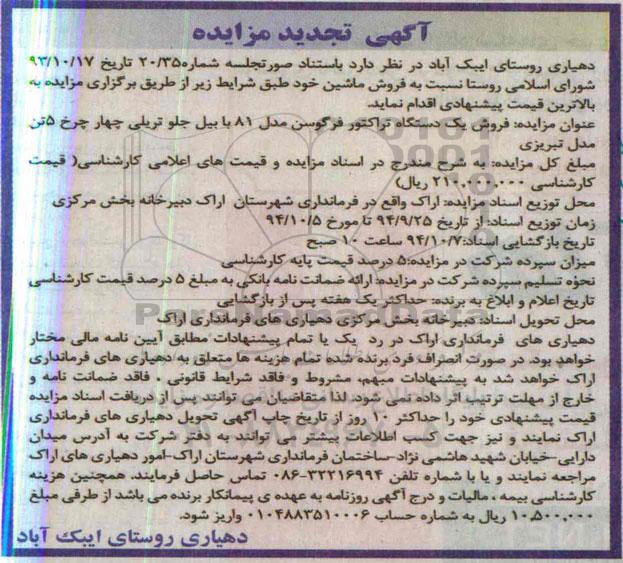 آگهی تجدید مزایده
دهیاری روستای ایبک آباد در نظر دارد باستناد صورتجلسه شماره۲۰/۳۵ تاریخ ۹۳/۱۰/۱۷
شورای اسلامی روستا نسبت به فروش ماشین خود طبق شرایط زیر از طریق برگزاری مزایده به
بالاترین قیمت پیشنهادی اقدام نماید.
عنوان مزایده: فروش یک دستگاه تراکتور فرگوسن مدل ۸۱ با بیل جلو تریلی چهار چرخ ۵تن
مدل تبریزی
مبلغ کل مزایده: به شرح مندرج در اسناد مزایده و قیمت های اعلامی کارشناسی( قیمت
کارشناسی ۲۱۰،۰۰۰،۰۰۰ ریال)
محل توزیع اسناد مزایده: اراک واقع در فرمانداری شهرستان اراک دبیرخانه بخش مرکزی
زمان توزیع اسناد: از تاریخ ۹۴/۹/۲۵ تا مورخ ۹۴/۱۰/۵
تاریخ بازگشایی اسناد:۹۴/۱۰/۷ ساعت ۱۰ صبح
میزان سپرده شرکت در مزایده:۵ درصد قیمت پایه کارشناسی
نحوه تسلیم سپرده شرکت در مزایده: ارائه ضمانت نامه بانکی به مبلغ ۵ درصد قیمت کارشناسی
تاریخ اعلام و ابلاغ به برنده: حداکثر یک هفته پس از بازگشایی
محل تحویل اسناد: دبیرخانه بخش مرکزی دهیاری های فرمانداری اراک
دهیاری های فرمانداری اراک در رد یک یا تمام پیشنهادات مطابق آیین نامه مالی مختار
خواهد بود. در صورت انصراف فرد برنده شده تمام هزینه ها متعلق به دهیاری های فرمانداری
اراک خواهد شد به پیشنهادات مبهم، مشروط و فاقد شرایط قانونی ، فاقد ضمانت نامه و
خارج از مهلت ترتیب اثر داده نمی شود. لذا متقاضیان می توانند پس از دریافت اسناد مزایده
قیمت پیشنهادی خود را حداکثر ۱۰ روز از تاریخ چاپ آگهی تحویل دهیاری های فرمانداری
اراک نمایند و نیز جهت کسب اطلاعات بیشتر می توانند به دفتر شرکت به آدرس میدان
دارایی-خیابان شهید هاشمی نژاد-ساختمان فرمانداری شهرستان اراک-امور دهیاری های اراک
مراجعه نمایند و یا با شماره تلفن ۳۲۲۱۶۹۹۴-۰۸۶ تماس حاصل فرمایند. همچنین هزینه
کارشناسی بیمه ، مالیات و درج آگهی روزنامه به عهده ی پیمانکار برنده می باشد از طرفی مبلغ
۱۰،۵۰۰،۰۰۰ ریال به شماره حساب ۰۱۰۴۸۸۳۵۱۰۰۰۶ واریز شود.
دهیاری روستای ایبک آباد